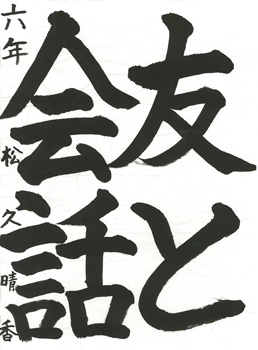 友と
会話
六年 松久晴香